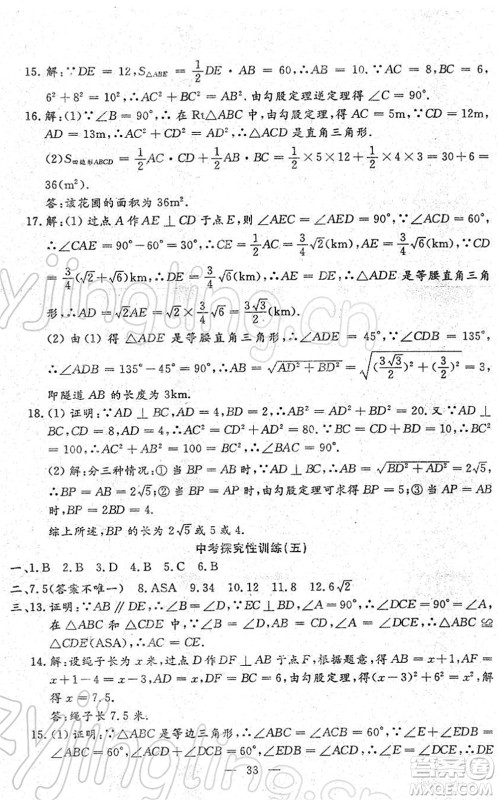 15. 解:∵DE = 12,S△ABE = 1/2 DE · AB = 60,∴AB = 10. ∵AC = 8,BC = 6,
6² + 8² = 10²,∴AC² + BC² = AB². 由勾股定理逆定理得∠C = 90°.
16. 解:(1)∵∠B = 90°,∴在 Rt△ABC 中,由勾股定理得 AC = 5m. ∵CD = 12m,
AD = 13m,∴AC² + CD² = AD²,∴△ACD 是直角三角形.
(2)S四边形ABCD = 1/2 AC · CD + 1/2 AB · BC = 1/2 × 5 × 12 + 1/2 × 4 × 3 = 30 + 6 =
36(m²).
答:该花圃的面积为 36m².
17. 解:(1) 过点 A 作 AE ⊥ CD 于点 E,则∠AEC = ∠AED = 90°,∵∠ACD = 60°,
∴∠CAE = 90° − 60° = 30°,∴CE = 1/2 AC = 3/4 √2(km),∴AE = 3/4 √6(km). ∵CD
= 3/4 (√2 + √6)(km),∴DE = 3/4 √6(km),∴AE = DE,∴△ADE 是等腰直角三角
形,∴AD = √2 AE = √2 × 3/4 √6 = 3√3/2 (km).
(2) 由 (1) 得△ADE 是等腰直角三角形,∴∠ADE = 45°,∵∠CDB = 135°,
∴∠ADB = 135° − 45° = 90°,∴AB = √(AD² + BD²) = √((3√3/2)² + (3/2)²) = 3,
即隧道 AB 的长度为 3km.
18. (1) 证明:∵AD ⊥ BC,AD = 4,BD = 2,∴AB² = AD² + BD² = 20. 又∵AD ⊥
BC,CD = 8,AD = 4,∴AC² = CD² + AD² = 80. ∵BC = CD + BD = 10,∴BC²
= 100,∴AC² + AB² = 100 = BC²,∴△ABC 是直角三角形.
(2) 解:分三种情况:① 当 BP = AB 时,∵AD ⊥ BC,∴AB = √(BD² + AD²) =
2√5,∴BP = AB = 2√5;② 当 BP = AP 时,由勾股定理可求得 BP = 5;③ 当 AP =
AB 时,BP = 2BD = 4.
综上所述,BP 的长为 2√5 或 5 或 4.
中考探究性训练(五)
一、1.B 2.D 3.D 4.C 5.C 6.B
二、7.5(答案不唯一) 8.ASA 9.34 10.12 11.2 12.6√2
三、13.证明:∵AB // DE,∴∠B = ∠D = 90°,∵∠A = 90°,∴∠DCE = 90° = ∠A,
在△ABC 和△DCE 中,∵∠B = ∠D,AB = DC,∠A = ∠DCE,∴△ABC ≌
△CDE(ASA),∴AC = CE.
14. 解:设绳子长为 x 米,过点 D 作 DF ⊥ AB 于点 F. 根据题意,得 AB = x + 1,AF =
x + 1 − 4 = x − 3,BD = x,DF = 6,由勾股定理得 BD² = BF² + DF²,解
得 x = 7.5.
答:绳子长 7.5 米.
15. (1) 证明:∵△ABC 是等边三角形,∴∠ABC = ∠ACB = 60°,∵∠E + ∠EDB =
∠ABC = 60°,∠ACD + ∠DCE = 60°,∠E = ∠DCE,∴∠EDB = ∠ACD.
— 33 —
zyjingling.cn
zyjingling.cn
答案圈
MXQE.COM